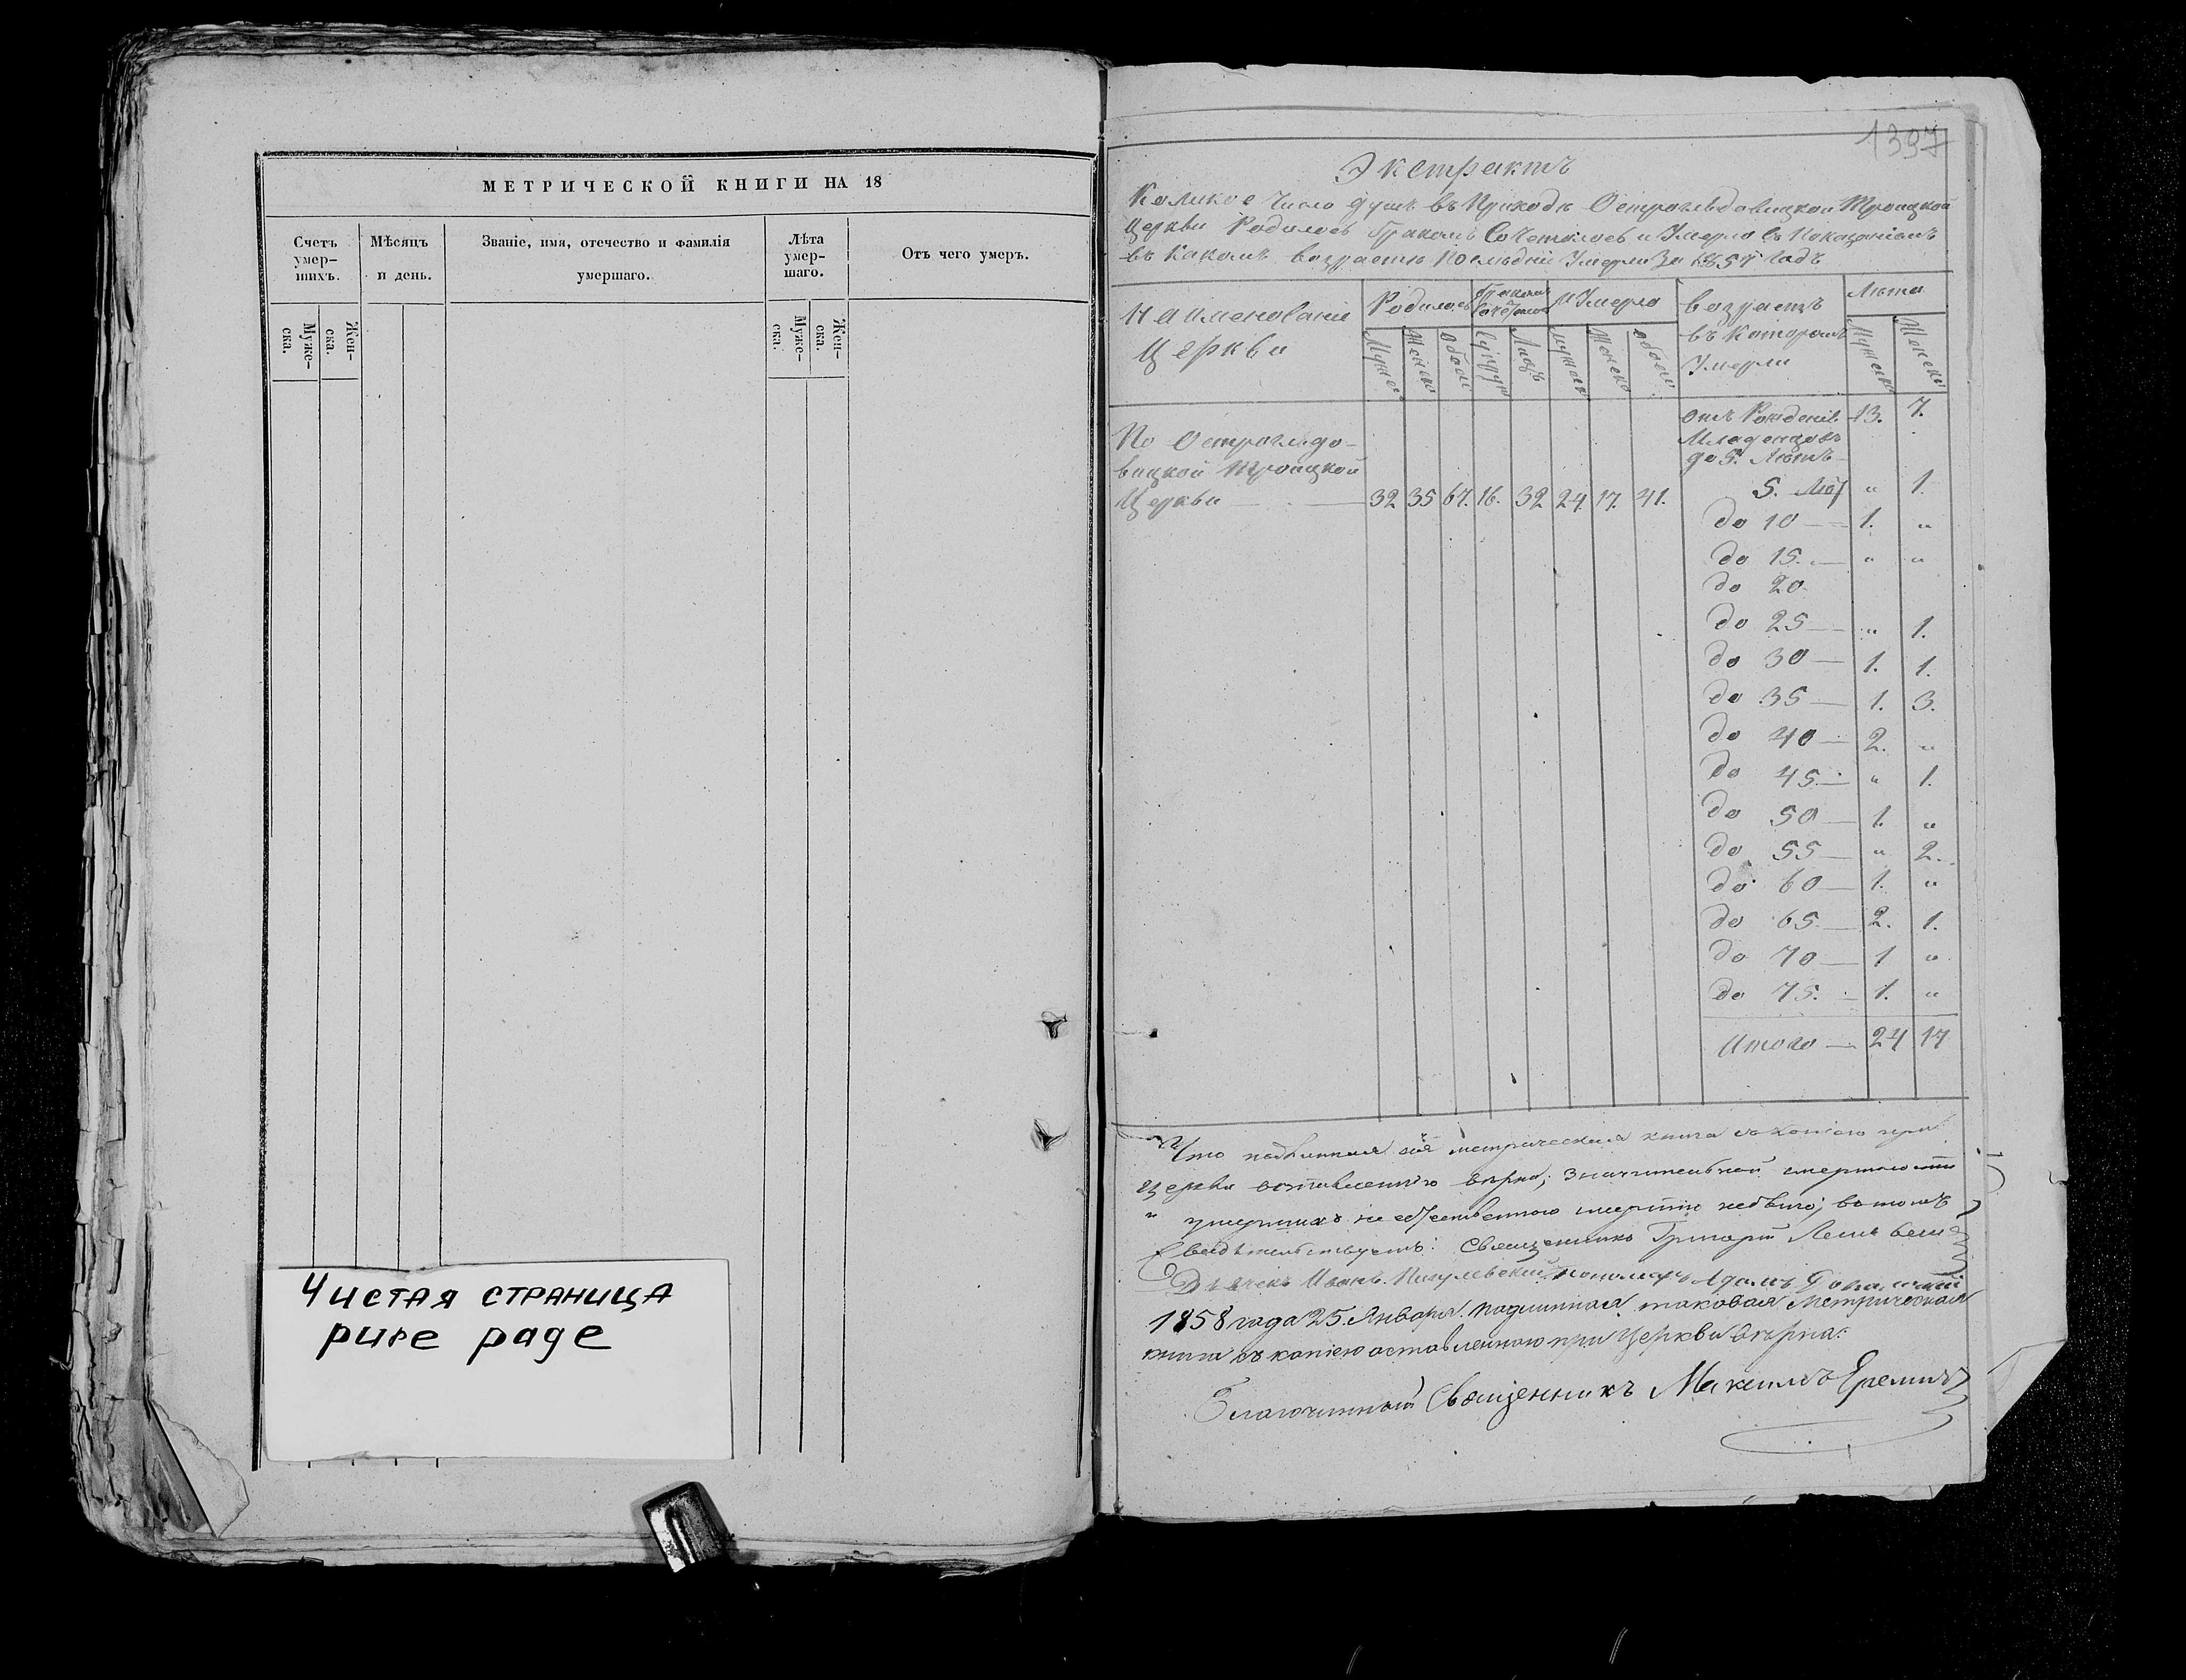 МЕТРИЧЕСКОЙ КНИГИ НА 18
Счетъ умер-шихъ.
Мѣсяцъ и день.
Званіе, имя, отечество и фамилія умершаго.
Лѣта умер-шаго.
Отъ чего умеръ.
Муже-ска.
Жен-ска.
Муже-ска.
Жен-ска.
Чистая страница
pure page
1397
Экстрактъ
Коликое Число душъ въ Приходѣ Острогледовицкой Троицкой
Церкви Родилось бракомъ Сочеталось и Умерло съ Показаніемъ
въ какомъ возрастѣ Послѣдніе Умерли За 1857 Годъ
Наименованіе Церкви
Родилось
Бракомъ
Умерло
возрастъ въ Которомъ Умерли
Лѣта
Мужес
Женск
Обоего
Лицъ
мужеск
Женска
обоего
Мужеска
Женска
По Острогледо-
вицкой Троицкой
Церкви 32 35 67. 16. 32 24 17. 41.
отъ Рожденія 13. 7.
Младенцовъ
до 5. Лѣтъ
5. Лѣт " 1.
до 10 1. "
до 15. " "
до 20
до 25 " 1.
до 30 1. 1.
до 35 1. 3.
до 40 2. "
до 45. " 1.
до 50 1. "
до 55 " 2.
до 60 1. "
до 65. 2. 1.
до 70 1 "
до 75. 1. "
Итого 24 17
Что подлинная сія метрическая книга съ копіею при
церкви оставленною вѣрна; значительной смертности
и умершихъ не естественною смертію небыло; въ томъ
Свидѣтельствуетъ: Священникъ Григорій
Дьячекъ Иванъ пономарь Адамъ
1858 года 25. Января. подлинная таковая Метрическая
книга съ копіею оставленною при Церкви вѣрна:
Благочинный Священникъ Максимъ Еремичъ